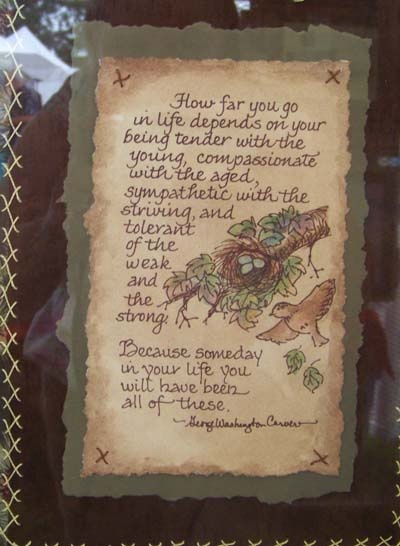 How far you go
in life depends on your
being tender with the
young, compassionate
with the aged,
sympathetic with the
striving, and
tolerant
of the
weak
and
the
strong.
Because someday
in your life you
will have been
all of these.
~ George Washington Carver